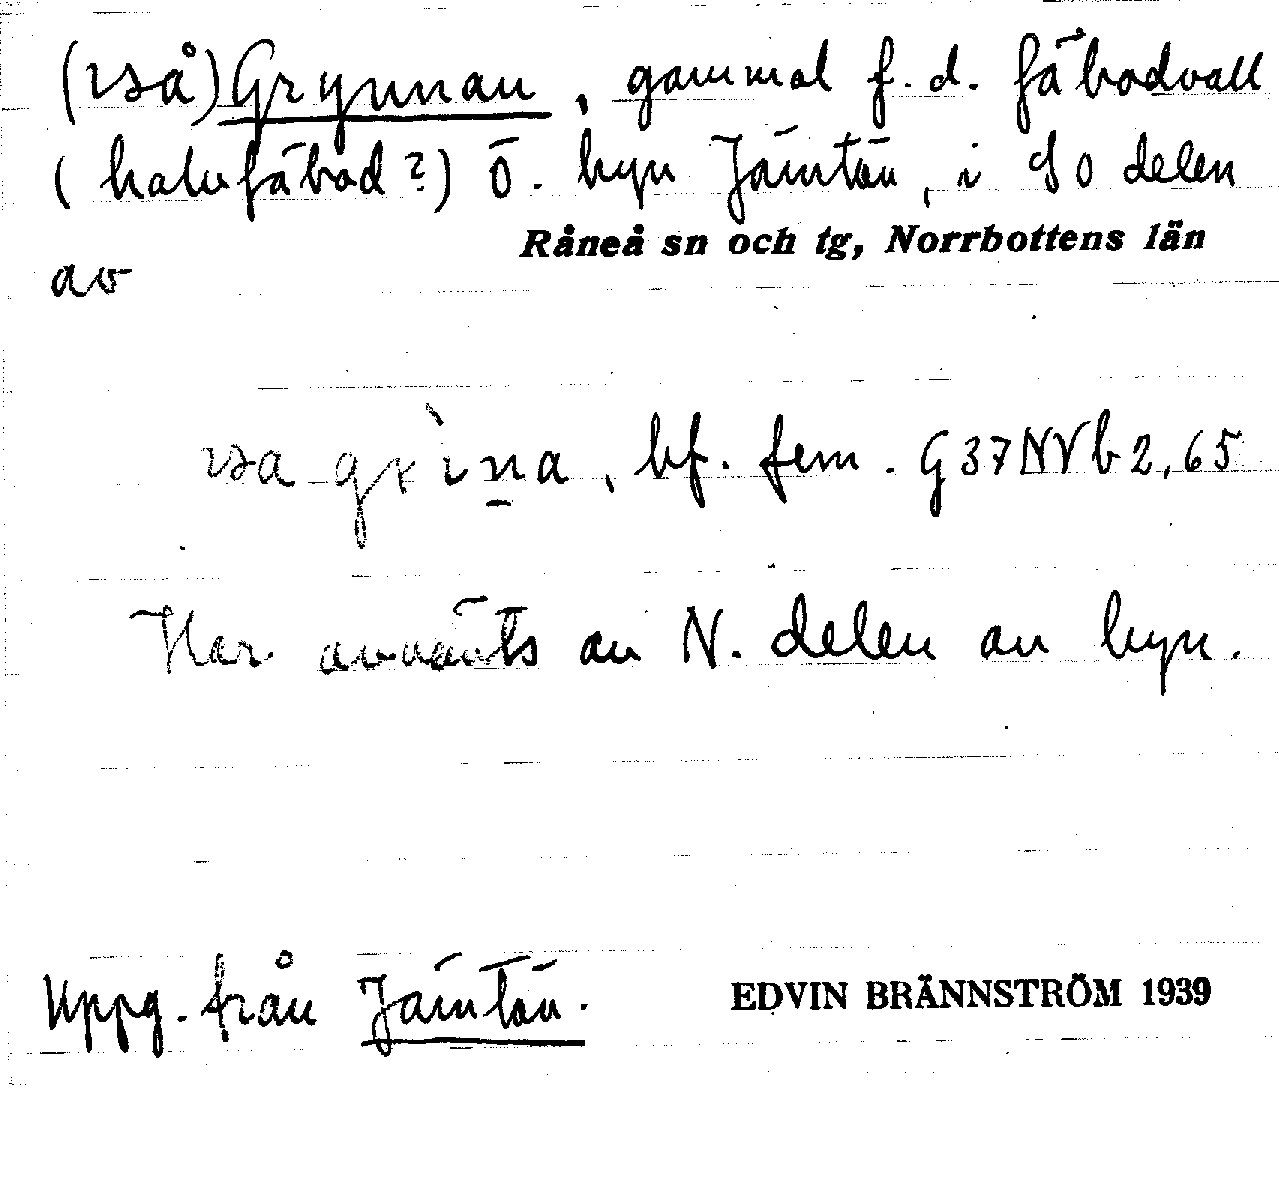 (på) Grynnan, gammal f.d. fäbodvall
(halvfäbod?) Ö. byn Jämtön, i SO delen
Råneå sn och tg, Norrbottens län
av
bf. fem. G37NVb2,65
Har använts av N. delen av byn.
Uppg. från Jämtön. EDVIN BRÄNNSTRÖM 1939